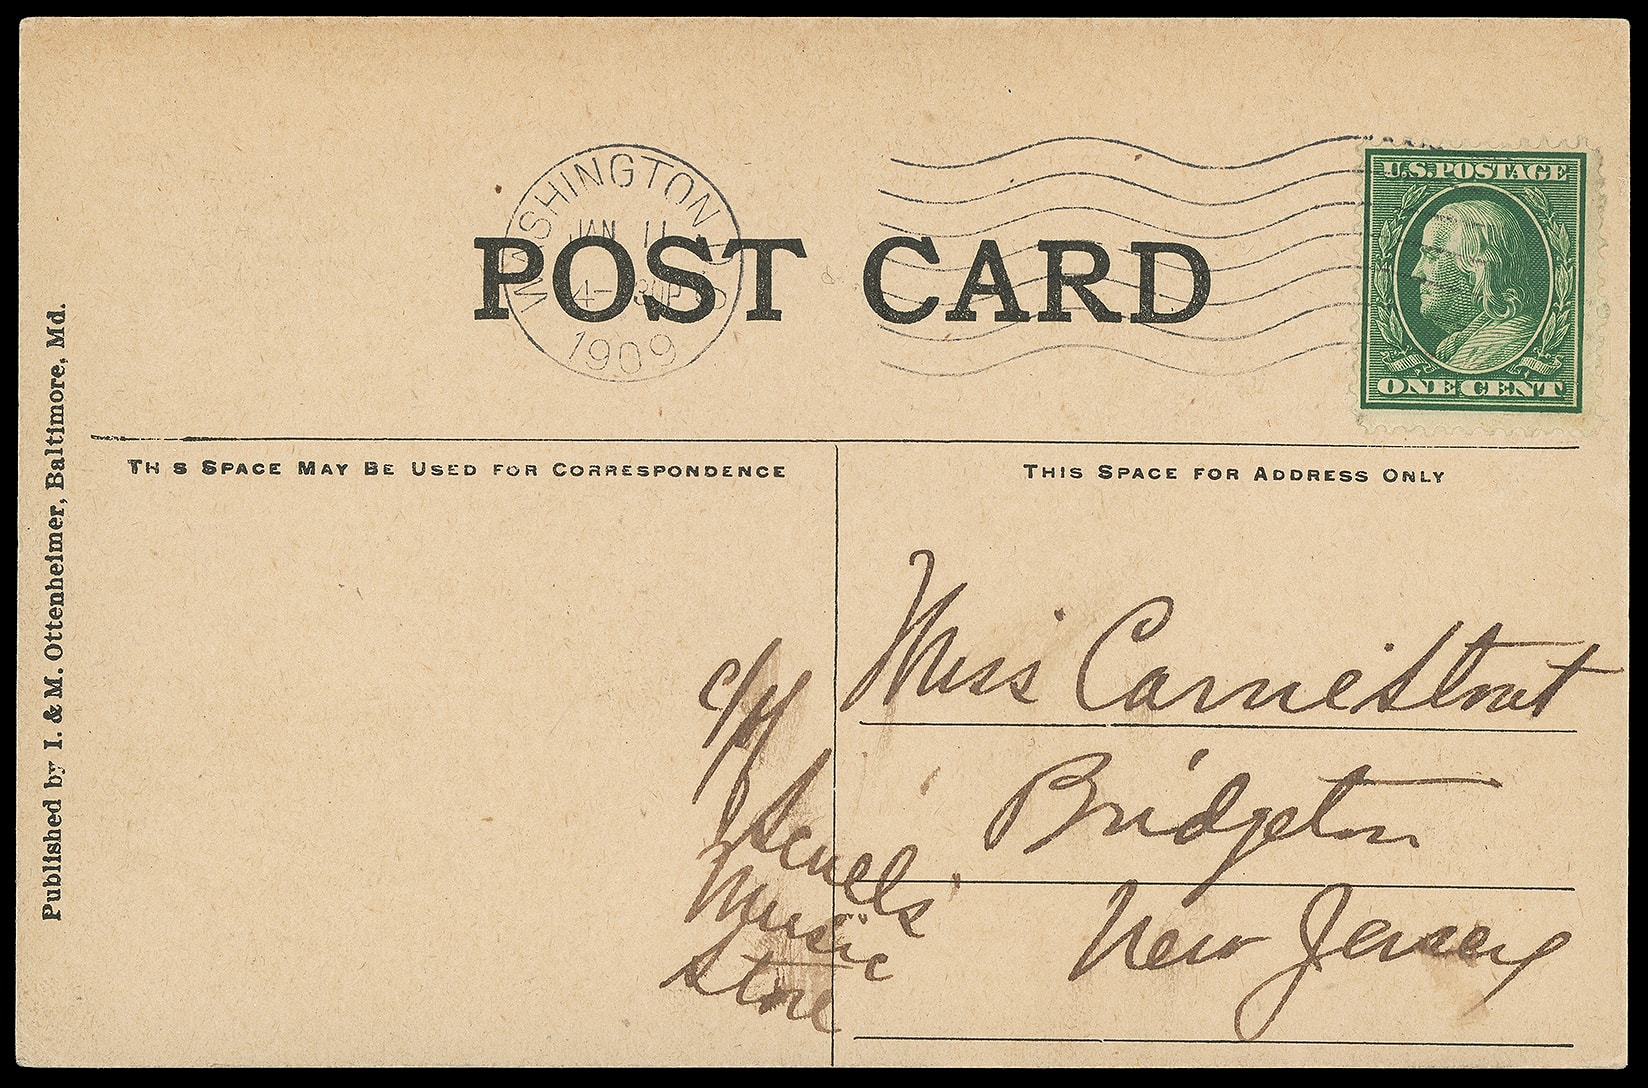 WASHINGTON, D.C.
JAN 11
4-30P
1909
POST CARD
U.S. POSTAGE
ONE CENT
Published by I. & M. Ottenheimer, Baltimore, Md.
TH S SPACE MAY BE USED FOR CORRESPONDENCE
THIS SPACE FOR ADDRESS ONLY
Miss Carrie Strout
Bridgeton
New Jersey
Music
Store